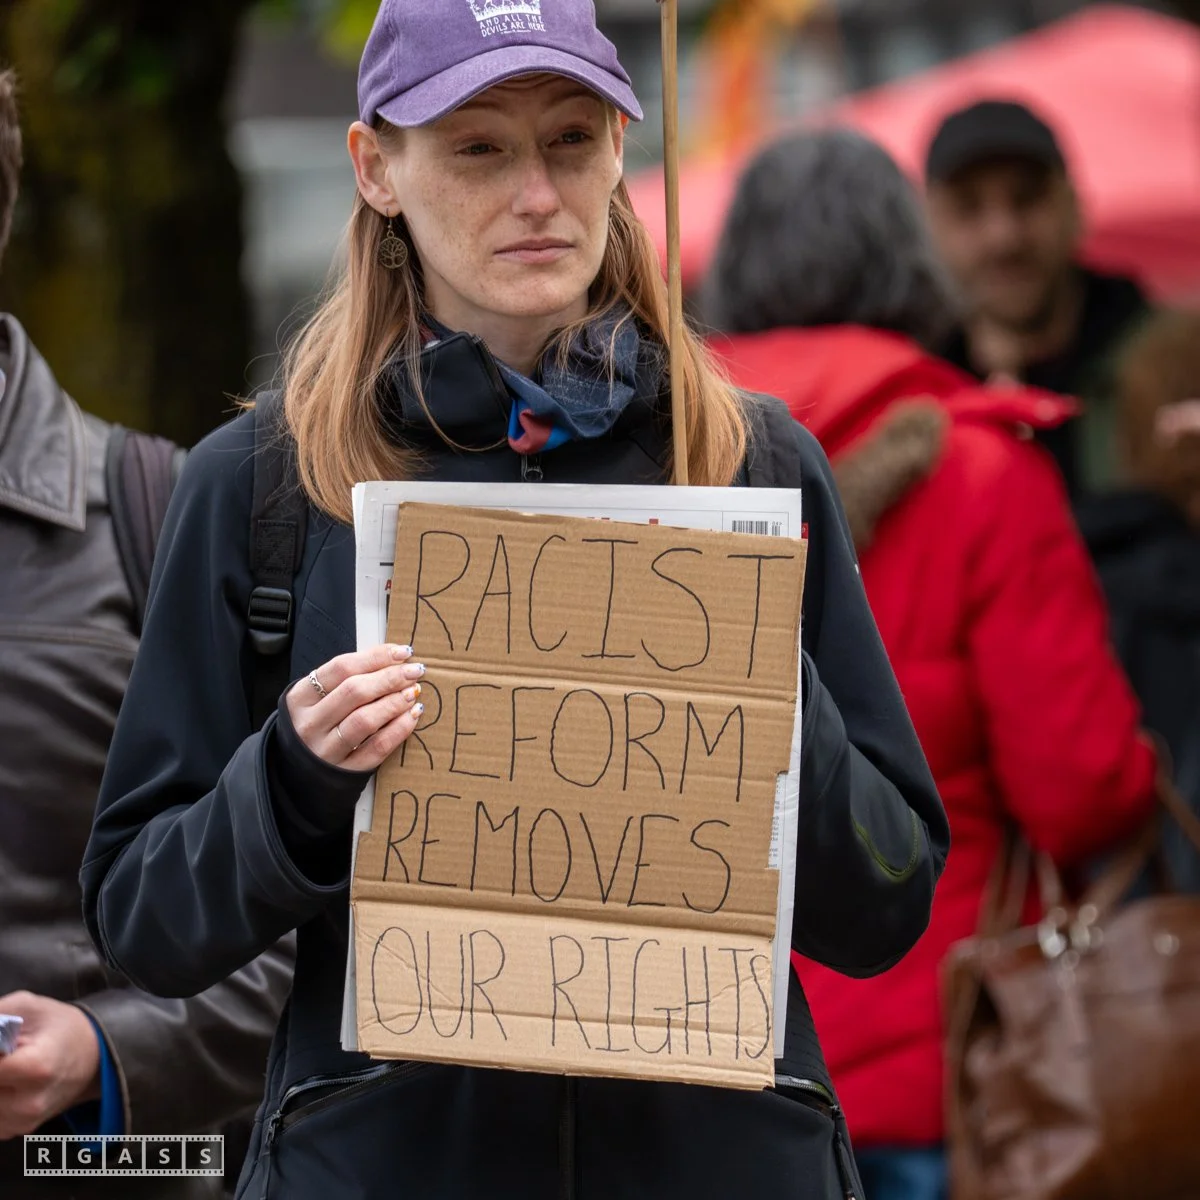 AND ALL THE
DEVILS ARE HERE
RACIST
REFORM
REMOVES
OUR RIGHTS
RGASS